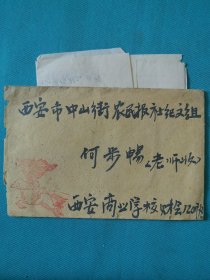 西安市中山街农民报社纪文组
何步畅（老师收）
西安商业学校